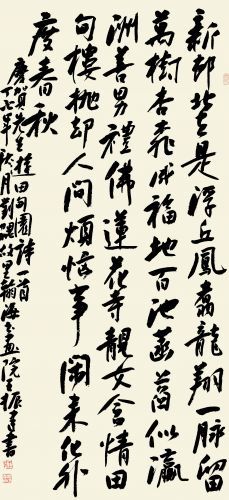 新邱北去是浮丘鳳翥龍翔一脉留
萬樹杏花成福地百池菡萏似瀛
洲善男禮佛蓮花寺靚女含情田
句樓抛却人間煩惱事閑來化外
度春秋
賀先生桂田句園詩一首
丁亥年秋月劉硯
書